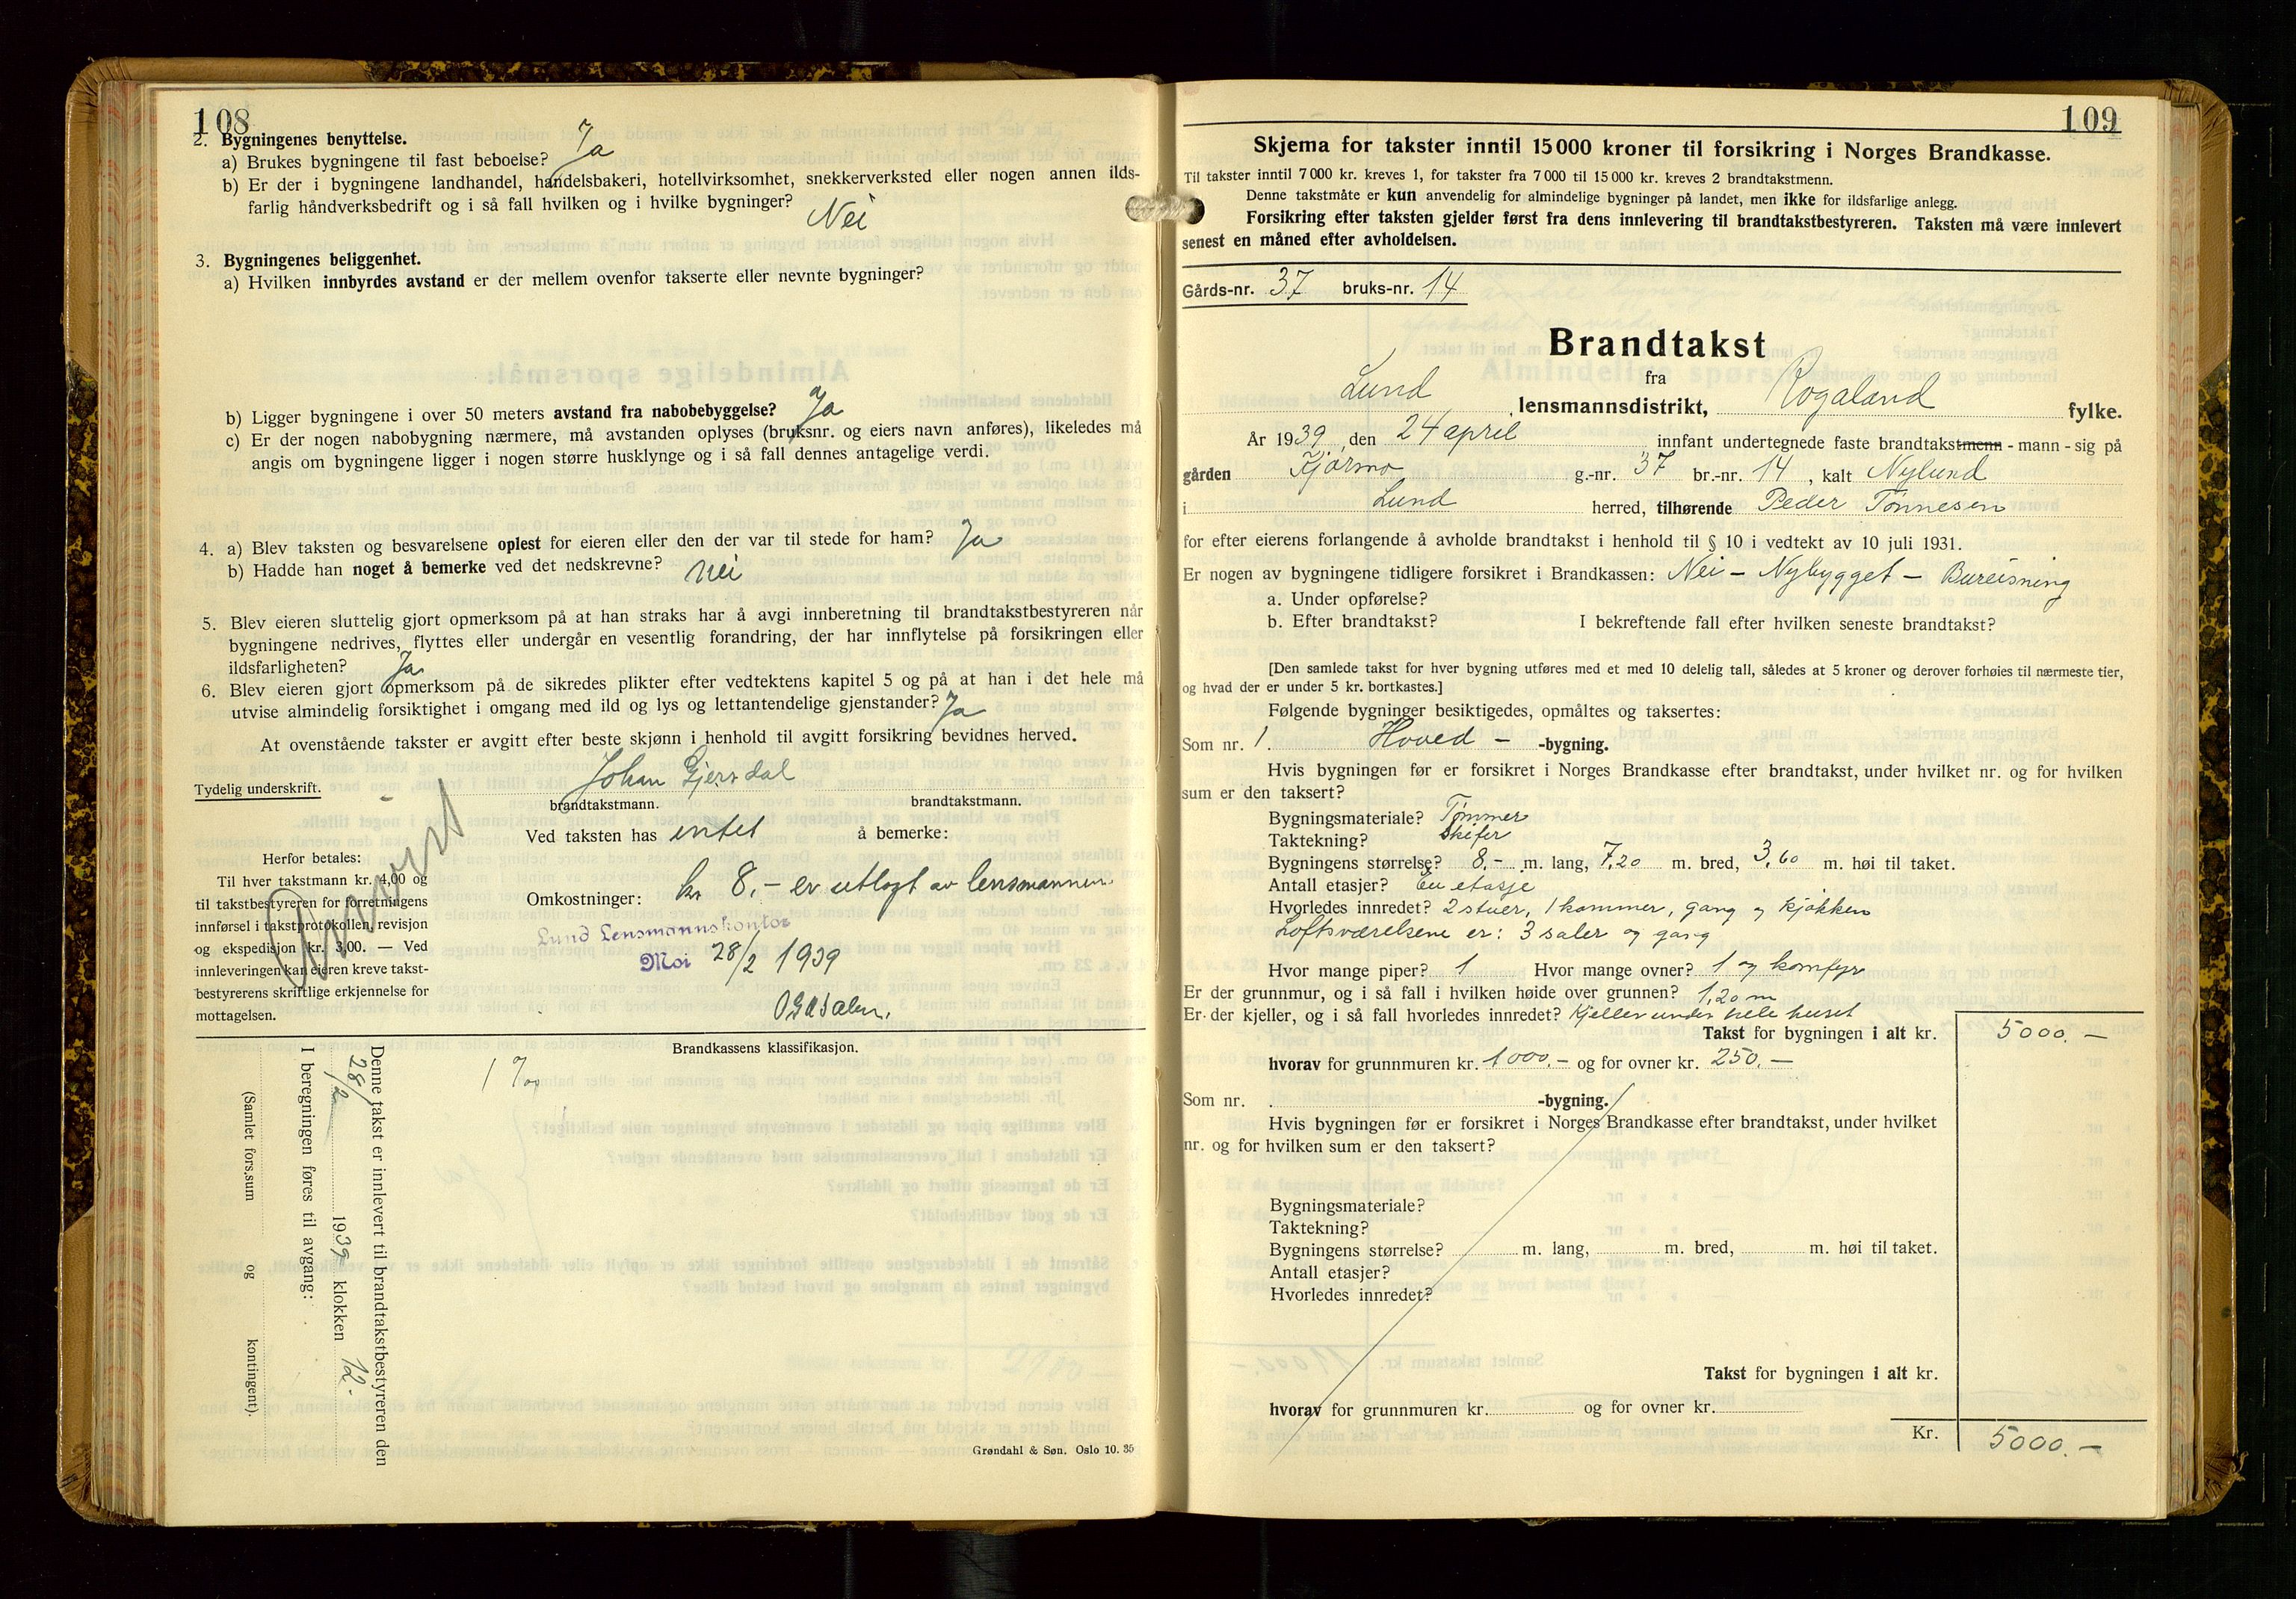 108
2. Bygningenes benyttelse.
a) Brukes bygningene til fast beboelse? Ja
b) Er der i bygningene landhandel, handelsbakeri, hotellvirksomhet, snekkerverksted eller nogen annen ilds-
farlig håndverksbedrift og i så fall hvilken og i hvilke bygninger? Nei
3. Bygningenes beliggenhet.
a) Hvilken innbyrdes avstand er der mellem ovenfor takserte eller nevnte bygninger?
b) Ligger bygningene i over 50 meters avstand fra nabobebyggelse? Ja
c) Er der nogen nabobygning nærmere, må avstanden oplyses (bruksnr. og eiers navn anføres), likeledes må
angis om bygningene ligger i nogen større husklynge og i så fall dennes antagelige verdi.
4. a) Blev taksten og besvarelsene oplest for eieren eller den der var til stede for ham? Ja
b) Hadde han noget å bemerke ved det nedskrevne? Nei
5. Blev eieren sluttelig gjort opmerksom på at han straks har å avgi innberetning til brandtakstbestyreren når
bygningene nedrives, flyttes eller undergår en vesentlig forandring, der har innflytelse på forsikringen eller
ildsfarligheten? Ja
6. Blev eieren gjort opmerksom på de sikredes plikter efter vedtektens kapitel 5 og på at han i det hele må
utvise almindelig forsiktighet i omgang med ild og lys og lettantendelige gjenstander? Ja
At ovenstående takster er avgitt efter beste skjønn i henhold til avgitt forsikring bevidnes herved.
Tydelig underskrift. Johan Gjersdal
brandtakstmann. brandtakstmann.
Ved taksten has intet å bemerke:
Herfor betales:
Til hver takstmann kr. 4,00 og
til takstbestyreren for forretningens
innførsel i takstprotokollen, revisjon
og ekspedisjon kr. 3,00. — Ved
innleveringen kan eieren kreve takst-
bestyrerens skriftlige erkjennelse for
mottagelsen.
Omkostninger: kr 8,- er utlagt av lensmannen.
Lund Lensmannskontor
Moi 28/2 1939
Brandkassens klassifikasjon.
1 ‰
Denne takst er innlevert til brandtakstbestyreren den
28/2 1939 klokken 12.
I beregningen føres til avgang:
(Samlet fors.sum og kontingent).
Grøndahl & Søn. Oslo 10. 35
109
Skjema for takster inntil 15 000 kroner til forsikring i Norges Brandkasse.
Til takster inntil 7 000 kr. kreves 1, for takster fra 7 000 til 15 000 kr. kreves 2 brandtakstmenn.
Denne takstmåte er kun anvendelig for almindelige bygninger på landet, men ikke for ildsfarlige anlegg.
Forsikring efter taksten gjelder først fra dens innlevering til brandtakstbestyreren. Taksten må være innlevert
senest en måned efter avholdelsen.
Gårds-nr. 37 bruks-nr. 14
Brandtakst
fra
Lund lensmannsdistrikt, Rogaland fylke.
År 1939, den 24 april innfant undertegnede faste brandtakstmenn - mann - sig på
gården Kjørmo g.-nr. 37 br.-nr. 14, kalt Nylund
i Lund herred, tilhørende Peder Tønnesen
for efter eierens forlangende å avholde brandtakst i henhold til § 10 i vedtekt av 10 juli 1931.
Er nogen av bygningene tidligere forsikret i Brandkassen: Nei - Nybygget - Bureisning
a. Under opførelse?
b. Efter brandtakst? I bekreftende fall efter hvilken seneste brandtakst?
[Den samlede takst for hver bygning utføres med et med 10 delelig tall, således at 5 kroner og derover forhøies til nærmeste tier,
og hvad der er under 5 kr. bortkastes.]
Følgende bygninger besiktigedes, opmåltes og taksertes:
Som nr. 1. Hoved - -bygning.
Hvis bygningen før er forsikret i Norges Brandkasse efter brandtakst, under hvilket nr. og for hvilken
sum er den taksert?
Bygningsmateriale? Tømmer
Taktekning? Skifer
Bygningens størrelse? 8,- m. lang, 7,20 m. bred, 3,60 m. høi til taket.
Antall etasjer? En etasje
Hvorledes innredet? 2 stuer, 1 kammer, gang og kjøkken
Loftsværelsene er: 3 saler og gang
Hvor mange piper? 1 Hvor mange ovner? 1 og komfyr
Er der grunnmur, og i så fall i hvilken høide over grunnen? 1,20 m
Er der kjeller, og i så fall hvorledes innredet? Kjeller under hele huset
Takst for bygningen i alt kr. 5000.-
hvorav for grunnmuren kr. 1000.- og for ovner kr. 250.-
Som nr. -bygning.
Hvis bygningen før er forsikret i Norges Brandkasse efter brandtakst, under hvilket
nr. og for hvilken sum er den taksert?
Bygningsmateriale?
Taktekning?
Bygningens størrelse? m. lang, m. bred, m. høi til taket.
Antall etasjer?
Hvorledes innredet?
Takst for bygningen i alt kr.
hvorav for grunnmuren kr. og for ovner kr.
Kr. 5000.-